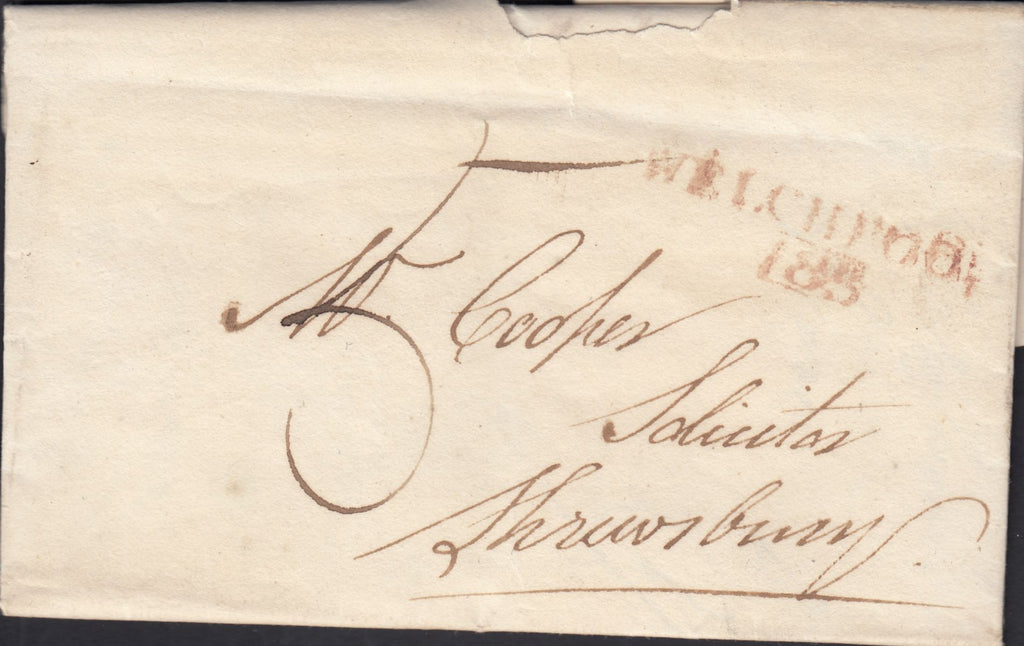 WELCHPOOL
5
Mr. Cooper
Solicitor
Shrewsbury